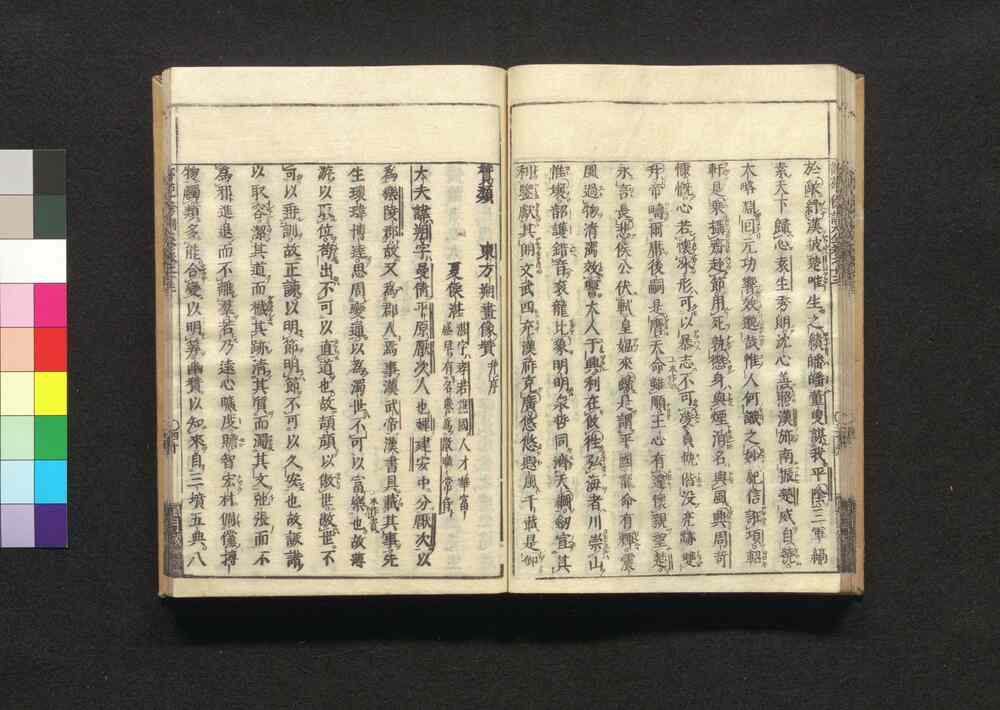 於敵紓漢披楚唯生之績皤皤董叟謀我平陰三軍縞
素天下歸心袁生秀朗沈心善照漢旆南振楚威自撓
大略淵回元功響效邈哉惟人何識之妙紀信誑項軺
軒是乘攝齊赴節用死孰懲身與煙消名與風興周苛
慷慨心若懷冰形可以暴志不可凌貞軌偕没亮跡雙
升帝疇爾庸後嗣是膺天命雖順王心有違懷親望楚
永言長悲侯公伏軾皇媼來歸是謂平國寵命有輝震
風過物清濁效響大人于興利在攸往弘海者川崇山
惟壤韶護錯音袞龍比象明明衆哲同濟天網劒宣其
利鑒獻其朗文武四充漢祚克廣悠悠遐風千載是仰
贊類
東方朔畫像贊并序
夏侯湛 湛字孝若譙國人才華富
盛早有名東爲散騎常侍
大夫諱朔字曼倩平原厭次人也魏建安中分厭次以
爲樂陵郡故又爲郡人焉事漢武帝漢書具載其事先
生瓌瑋博達思周變通以爲濁世不可以富樂也故薄
游以取位苟出不可以直道也故頡頏以傲世傲世不
可以垂訓故正諫以明節明節不可以久安也故詼諧
以取容潔其道而穢其跡清其質而濁其文弛張而不
爲邪進退而不離羣若乃遠心曠度贍智宏材倜儻博
物觸類多能合變以明筭幽贊以知來自三墳五典八